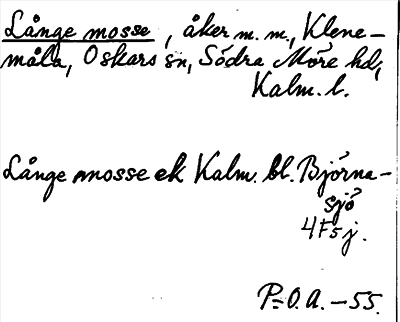 Långe mosse, åker m. m., Klene-
måla, Oskars sn, Södra Möre hd,
Kalm. l.
Långe mosse ek Kalm. bl. Björna-
sjö
4F5j.
P-O.A. -55.